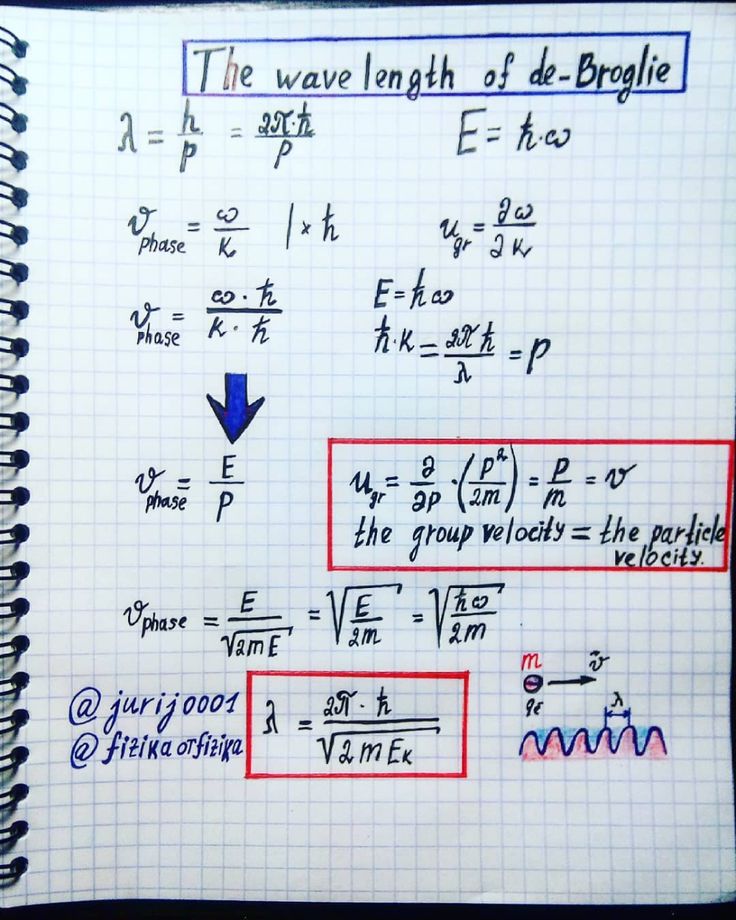 The wave length of de-Broglie
λ = h/p = 2π·ħ/p
E = ħ·ω
v phase = ω/k | × ħ
u gr = ∂ω/∂k
v phase = ω·ħ/k·ħ
E = ħω
ħ·k = 2πħ/λ = p
v phase = E/p
u gr = ∂/∂p · (p²/2m) = p/m = v
the group velocity = the particle
velocity.
v phase = E/√2mE = √E/2m = √ħω/2m
@jurij0001
@fizikaотfizika
λ = 2π·ħ/√2mEк
m
v
qe
λ